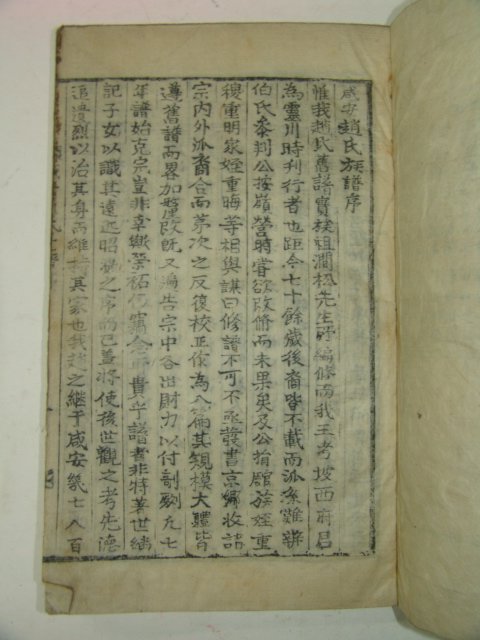 咸安趙氏族譜序
惟我趙氏舊譜實族祖澗松先生所編修而我王考坡西府君
為靈川時刊行者也距今七十餘歲後裔皆不載而派系難辨
伯氏參判公按嶺營時嘗欲改修而未果矣及公捐館族姪重
稷重明家姪重晦等相與謀曰修譜不可不亟發書京鄉收諸
宗內外派裔合而第次之反復校正作為八篇其規模大軆皆
遵舊譜而畧加釐改既又遍告宗中各出財力以付剞劂九七
年譜始克宗豈非幸歟榮祏仍竊念所貴乎譜者非特著世緒
記子女以識其遠近昭穆之序而已盖將使後世觀之考先德
追遺烈以治其身而維持其家也我趙之繼于咸安幾七八百